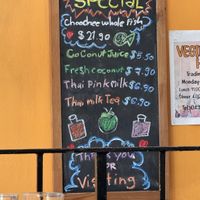 SPECIAL
Choochee whole fish
$21.90
Coconut Juice $5.50
Fresh coconut $7.90
Thai Pink milk $6.90
Thai milk Tea $6.90
Thank you
FOR
Visiting
VEG
Monday